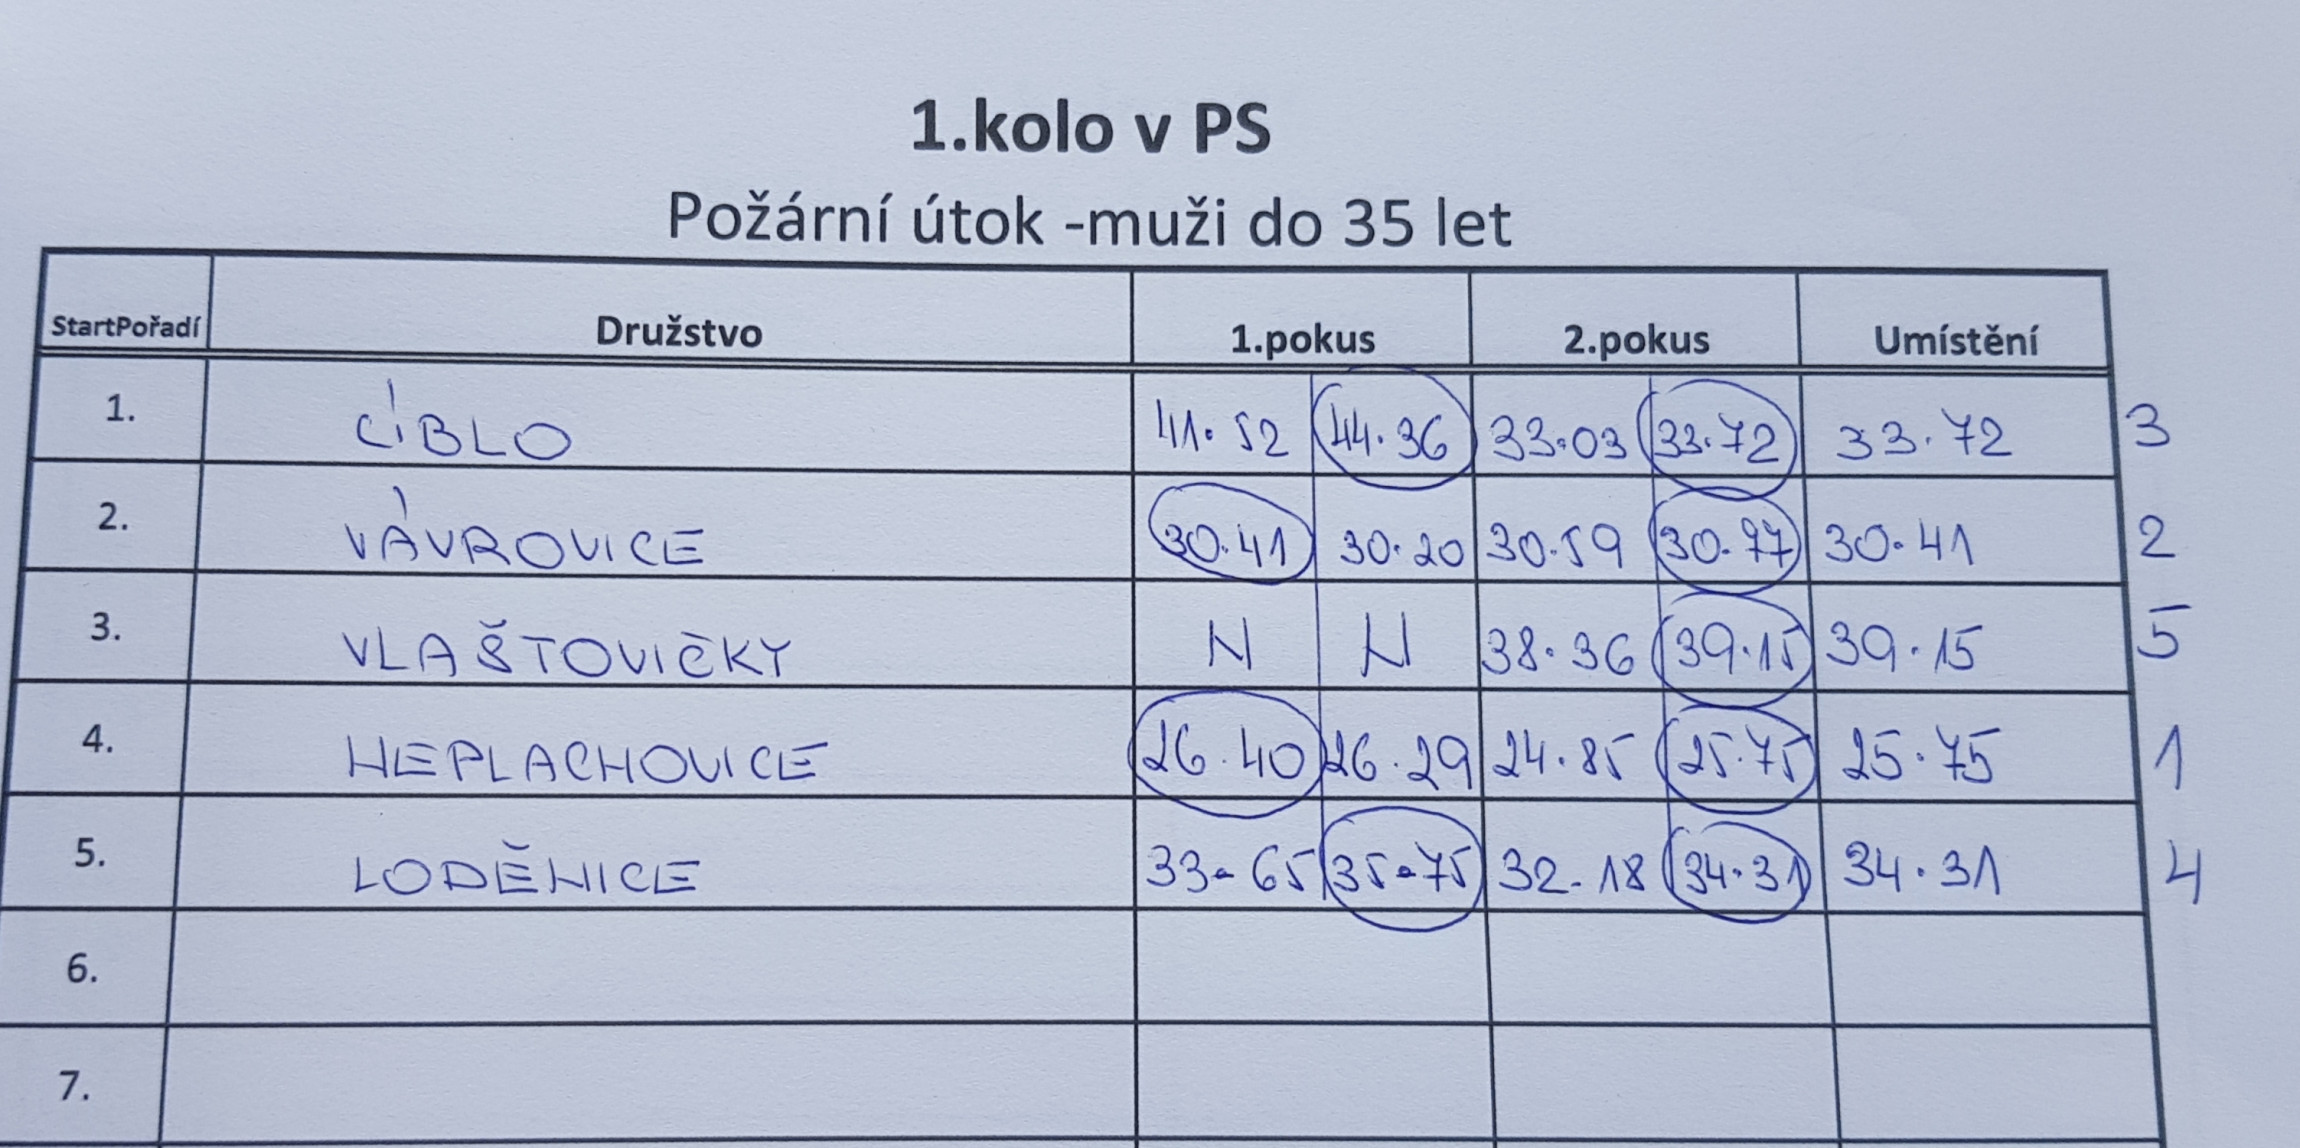 1.kolo v PS
Požární útok -muži do 35 let
StartPořadí Družstvo 1.pokus 2.pokus Umístění
1. CÍBLO 41.52 44.36 33.03 33.72 33.72 3
2. VÁVROVICE 30.41 30.20 30.59 30.77 30.41 2
3. VLAŠTOVIČKY N N 38.36 39.15 39.15 5
4. NEPLACHOVICE 26.40 26.29 24.85 25.75 25.75 1
5. LODĚNICE 33.65 35.75 32.18 34.31 34.31 4
6.
7.